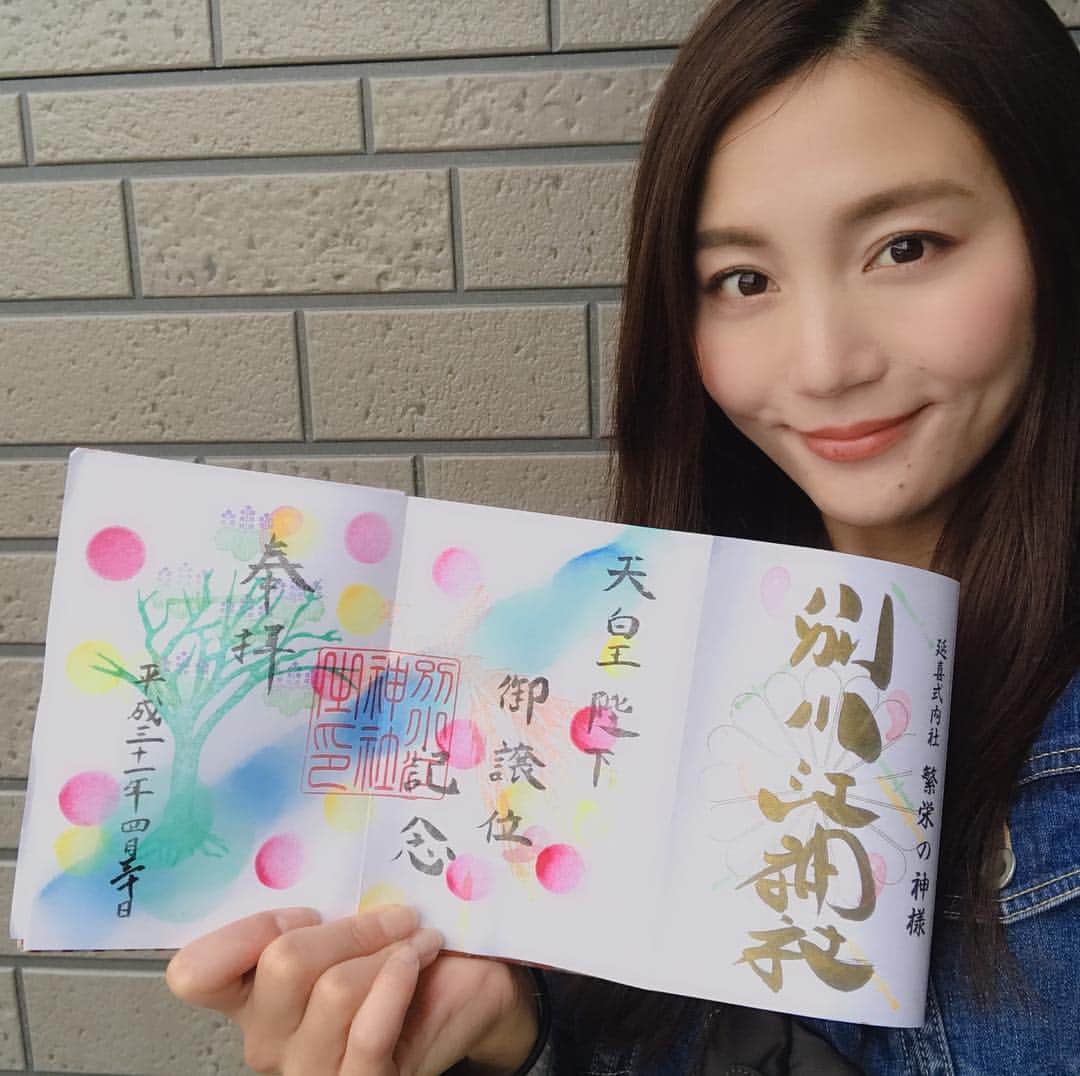 延喜式内社 繁栄の神様
別小江神社
天皇陛下
御譲位
記念
別小江
神社
之印
奉拝
平成三十一年 四月三十日